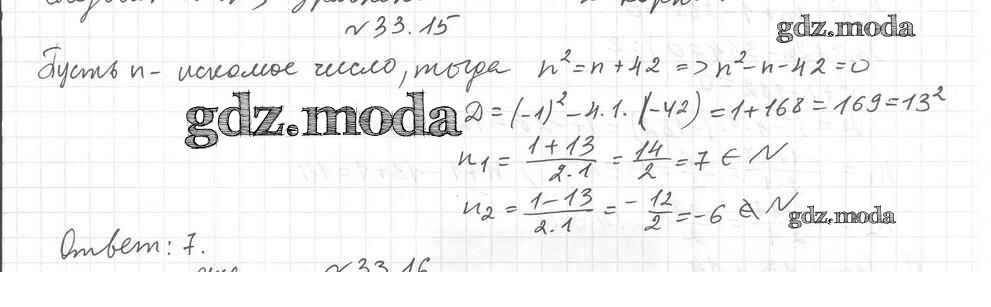 №33.15
gdz.moda
Пусть n - искомое число, тогда n² = n + 42 => n² - n - 42 = 0
gdz.moda
D = (-1)² - 4 · 1 · (-42) = 1 + 168 = 169 = 13²
n₁ = (1 + 13)/(2 · 1) = 14/2 = 7 ∈ N
n₂ = (1 - 13)/(2 · 1) = -12/2 = -6 ∉ N
gdz.moda
Ответ: 7.
№33.16